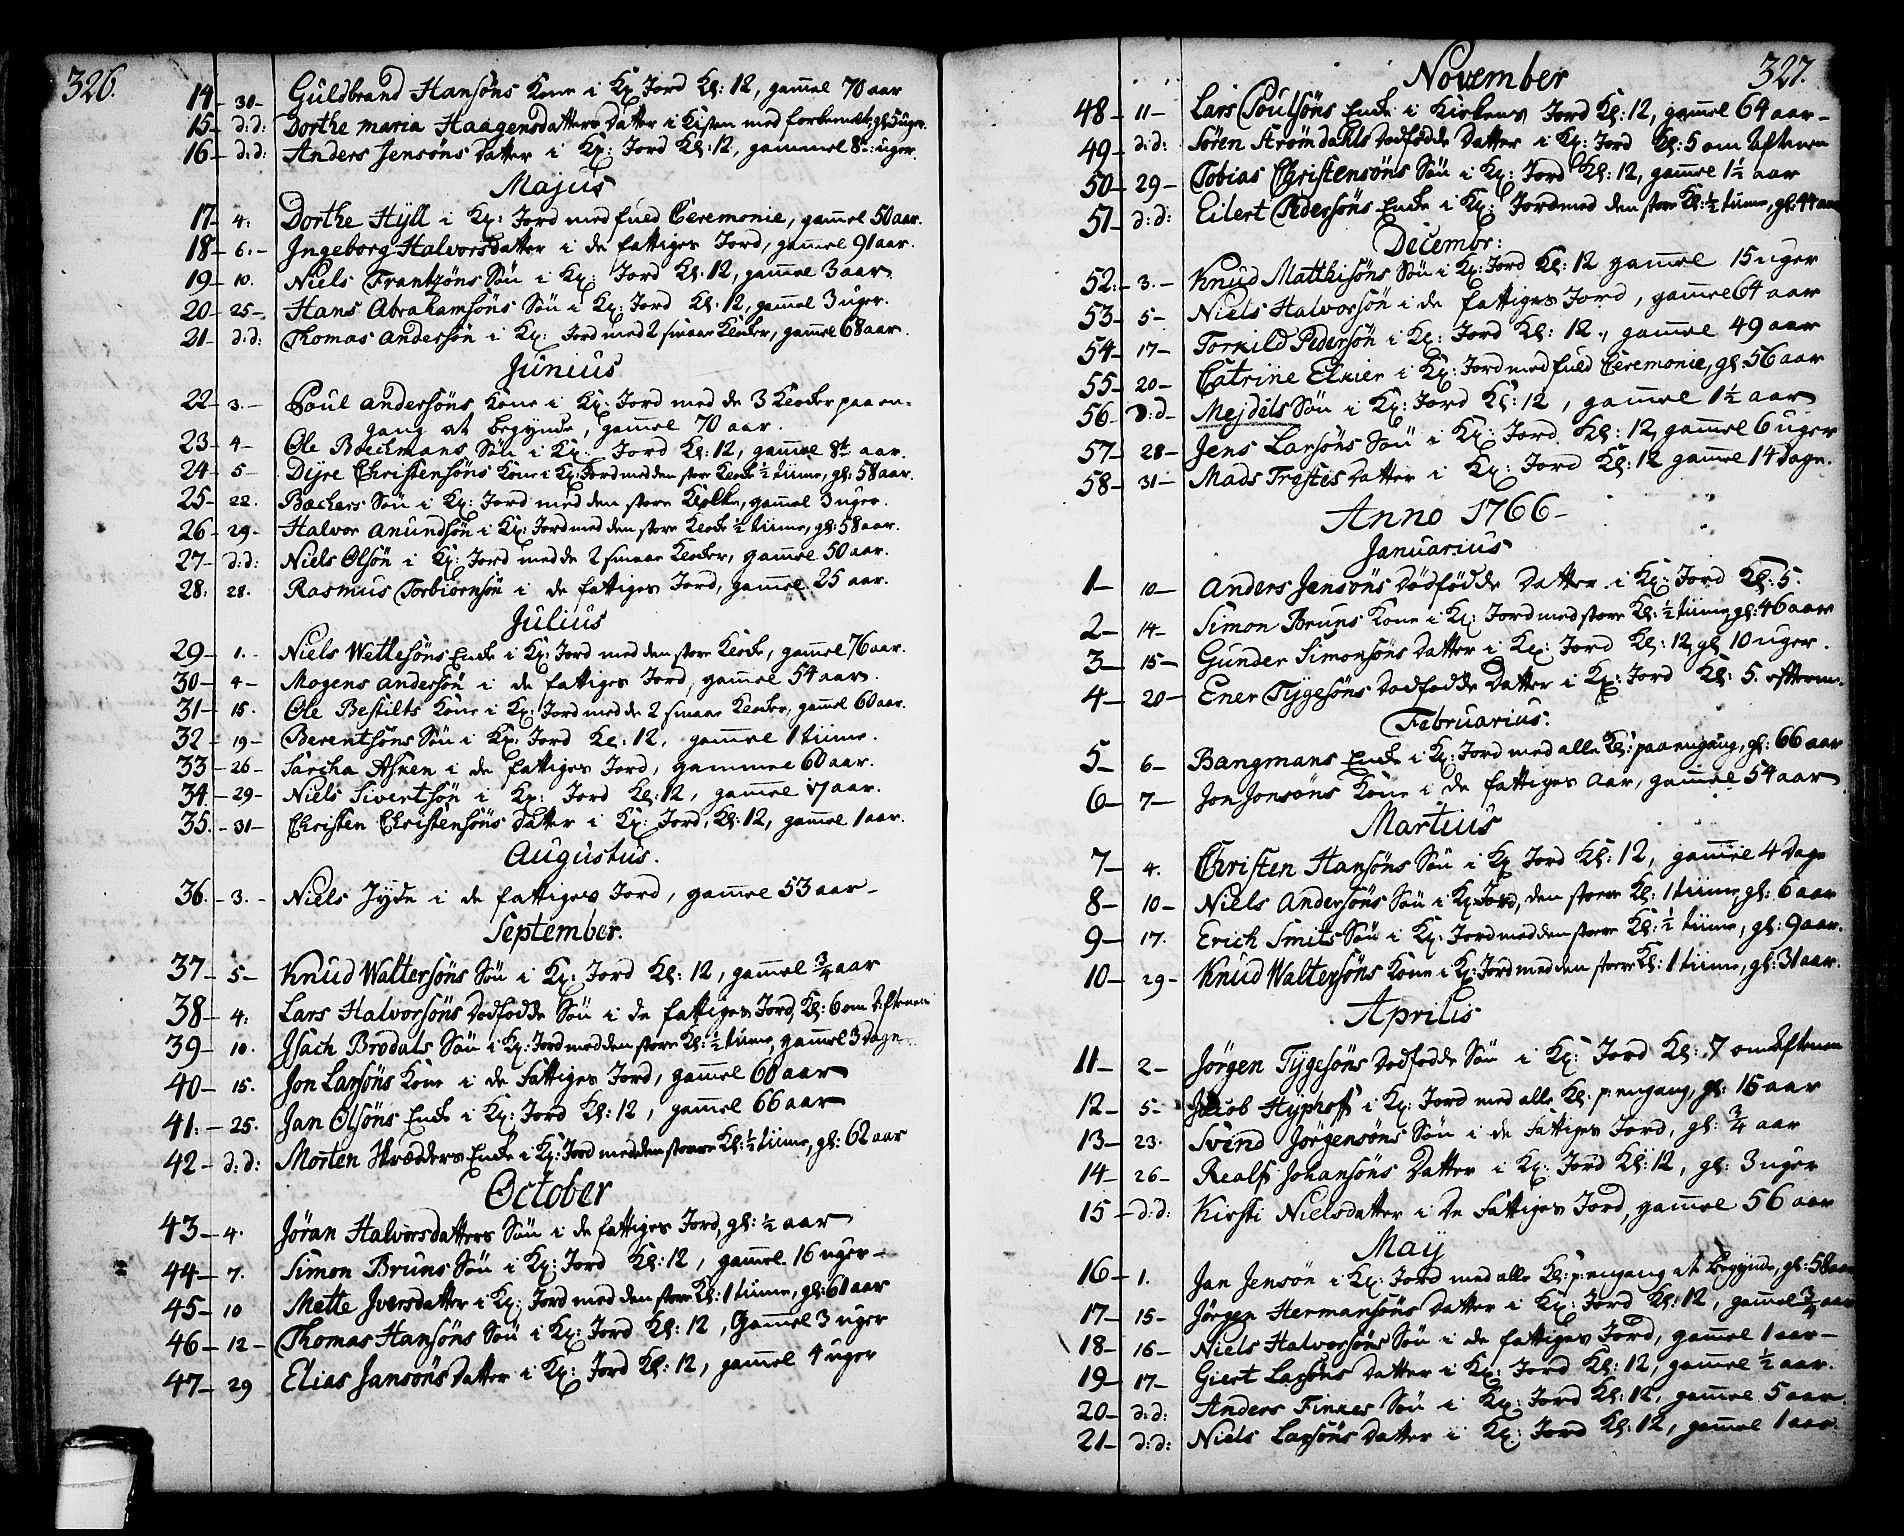 326.
14 - 30 - Guldbrand Hansøns Kone i Kp: Jord Kl: 12, gamel 70 aar
15 - d:d: Dorthe Maria Haagensdatters Datter i Kisten med forbemelt, gl: 5 uger.
16 - d:d: Anders Jensøns Datter i Kp: Jord Kl: 12, gammel 8te uger.
Majus
17 - 4: Dorthe Hÿll i Kp: Jord med fuld Ceremonie, gamel 50 aar.
18 - 6. - Jngeborg Halvorsdatter i de fattiges Jord, gamel 91 aar.
19 - 10. Niels Frantzøns Søn i Kp: Jord Kl: 12, gamel 3 aar
20 - 25 - Hans Abrahamsøns Søn i Kp: Jord Kl: 12, gamel 3 uger.
21 - d:d: Thomas Andersøn i Kp: Jord med 2 smaae Klocker, gamel 68 aar.
Junius
22 - 3. - Poul Andersøns Kone i Kp: Jord med de 3 Klocker paa en-
gang at begynde, gamel 70 aar.
23 - 4 - Ole Boeckmans Søn i Kp: Jord Kl: 12, gamel 8te aar.
24 - 5 - Dijre Christensøns Kone i Kp: Jord med den store Klocke ½ tiime, gl: 58 aar.
25 - 22. Backers Søn i Kp: Jord med den store Klocke, gamel 3 uger.
26 - 29 - Halvor Anundsøn i Kp: Jord med den store Klocke ½ tiime, gl: 58 aar.
27 - d:d: Niels Olsøn i Kp: Jord med de 2 smaae Klocker, gamel 50 aar.
28: 28. Rasmus Torbiørnsøn i de fattiges Jord, gamel 25 aar.
Julius
29 - 1. - Niels Wettesøns Encke i Kp: Jord med den store Klocke, gamel 76 aar.
30 - 4 - Mogens Andersøn i de fattiges Jord, gamel 54 aar.
31 - 15. Ole Bestilts Kone i Kp: Jord med de 2 smaae Klocker, gamel 60 aar.
32 - 19 - Berentsøns Søn i Kp: Jord Kl: 12, gamel 1 tiime.
33 - 26 - Sarcha Asken i de fattiges Jord, gammel 60 aar.
34 - 29 - Niels Sivertsøn i Kp: Jord Kl: 12, gamel 17 aar.
35. - 31 - Christen Christensøns Datter i Kp: Jord, Kl: 12, gamel 1 aar.
Augustus.
36. - 3. - Niels Jyde i de fattiges Jord, gamel 53 aar -
September.
37 - 5 - Knud Waltersøns Søn i Kp: Jord Kl: 12, gamel ¾ aar
38 - 4: Lars Halvorsøns Dødfødde Søn i de fattiges Jord, Kl: 6 om Aftenen
39 - 10. Jsach Brødals Søn i Kp: Jord med den store Kl: ½ tiime, gamel 3 Dage
40 - 15. Jon Larsøns Kone i de Fattiges Jord, gamel 60 aar
41: - 25. Jan Olsøns Encke i Kp: Jord Kl: 12, gamel 66 aar
42 - d:d: Morten Skrædders Encke i Kp: Jord med den store Kl: ½ tiime, gl: 62 aar
October
43 - 4. Jøran Halvorsdatters Søn i de fattiges Jord, gl: ½ aar
44 - 7. Simon Bruns Søn i Kp: Jord Kl: 12, gamel 16 uger -
45 - 10 Mette Jversdatter i Kp: Jord med den store Kl: 1 tiime, gl: 61 aar
46 - 12 - Thomas Hansøns Søn i Kp: Jord Kl: 12, Gamel 3 uger
47 - 29 Elias Jansøns Datter i Kp: Jord Kl: 12, gamel 4 uger
327.
November
48 - 11 - Lars Poulsøns Encke i Kirkens Jord Kl: 12, gamel 64 aar -
49 - d:d: Søren Strømdahls Dødfødde Datter i Kp: Jord Kl: 5 om Aftenen
50 - 29 - Tobias Christensøns Søn i Kp: Jord Kl: 12, gamel 1½ aar
51 - d:d: Eilert Pedersøns Encke i Kp: Jord med den store Kl: ½ tiime, gl: 44 aar
Decembr:
52: - 3. - Knud Matthisøns Søn i Kp: Jord Kl: 12 gamel 15 uger
53 - 5 - Niels Halvorsøn i de fattiges Jord, gamel 64 aar
54 - 17 - Torkild Pedersøn i Kp: Jord Kl: 12., gamel 49 aar
55 - 20 - Catrine Elkier i Kp: Jord med fuld Ceremonie, gl: 56 aar
56 - d:d - Mejdels Søn i Kp: Jord Kl: 12, gamel 1½ aar
57 - 28 - Jens Larsøns Søn i Kp: Jord Kl: 12, gamel 6 uger
58 - 31 - Mads Trøstes Datter i Kp: Jord Kl: 12 gamel 14 Dage.
Anno 1766 -
Januarius
1 - 10 - Anders Jensøns Dødfødde Datter i Kp: Jord Kl: 5.
2 - 14 - Simon Bruns Kone i Kp: Jord med store Kl: ½ tiime, gl: 46 aar
3 - 15 - Gunder Simonsøns Datter i Kp: Jord Kl: 12, gl 10 uger.
4 - 20 - Ener Tÿgesøns Dødfødde Datter i Kp: Jord Kl: 5. efterm.
Februarius.
5 - 6 - Bangmans Encke i Kp: Jord med alle Kl: paa engang, gl: 66 aar
6 - 7 - Jon Jonsøns Kone i de fattiges aar, gamel 54 aar
Martius
7 - 4. Christen Hansøns Søn i Kp Jord Kl: 12, gamel 4 Dage
8 - 10 - Niels Andersøns Søn i Kp: Jord, den store Kl: 1 tiime, gl: 6 aar
9 - 17. Erich Smits Søn i Kp: Jord med den store Kl: ½ tiime, gl: 9 aar.
10 - 29 - Knud Waltersøns Kone i Kp: Jord med den store Kl: 1 tiime, gl: 31 aar.
Aprilis
11 - 2 - Jørgen Tÿgesøns Dødfødde Søn i Kp: Jord Kl: 7 om Aftenen
12 - 5 - Jacob Hÿphoff i Kp: Jord med alle Kl: p: engang, gl: 16 aar
13 - 23. Svend Jørgensøns Søn i de Fattiges Jord, gl: ¾ aar
14 - 26 - Realf Johansøns Datter i Kp: Jord Kl: 12, gl: 3 uger
15 - d:d: Kirsti Nielsdatter i De Fattiges Jord, gamel 56 aar
May
16 - 1. Jan Jensøn i Kp: Jord med alle Kl: p: engang at begynde, gl: 58 aar
17 - 15 - Jørgen Hermansøns Datter i Kp: Jord Kl: 12, gamel ¾ aar
18 - 16 - Niels Halvorsøns Søn i de fattiges Jord, gamel 1 aar -
19 - 17 - Giert Larsøns Datter i Kp: Jord Kl: 12, gamel ½ aar.
20 - d:d: Anders Finkes Søn i Kp: Jord Kl: 12, gamel 5 aar
21 - d:d: Niels Larsøns Datter i Kp: Jord Kl: 12, gamel 1 aar.